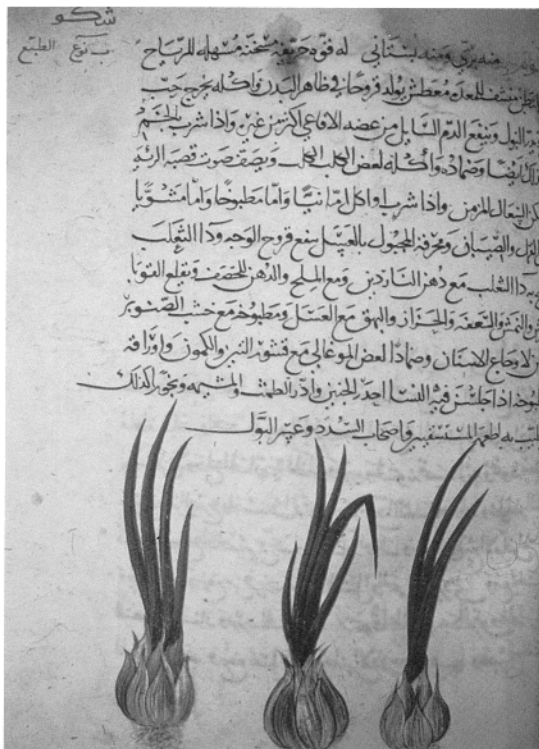 شكو
منه برّي ومنه بستاني له قوة حريفة مسخنة مسهلة للرياح
منشف للمعدة معطش يولد قروحا في ظاهر البدن واكله يخرج حب
البول وينفع الدم السايل من عضه الافاعي اكثر من غيره واذا شرب بالخمر
ايضا وضماده واكله لعض الكلب الكلب ويصفي صوت قصبة الرئه
السعال المزمن واذا شرب او اكل اما نيا واما مطبوخا واما مشويا
القمل والصيبان ومحرقه المجبول بالعسل ينفع قروح الوجه ودا الثعلب
به دا الثعلب مع دهن الناردين ومع الملح والدهن للحصف ويقلع القوبا
والنمش والسعفه والحزاز والبهق مع العسل ومطبوخه مع خشب الصنوبر
لاوجاع الاسنان وضمادا لعض الموغالي مع قشور التين والكمون واوراقه
اذا جلسن فيه النسا احدر الجنين وادر الطمث والمشيمه وبخوره كذلك
به المستسقيين واصحاب السدد وعسر البول